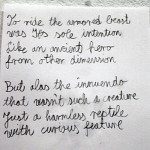 To ride the armored beast
was its sole intention
Like an ancient hero
from other dimension
But alas the innuendo
that wasn't such a creature
Just a harmless reptile
with curious feature